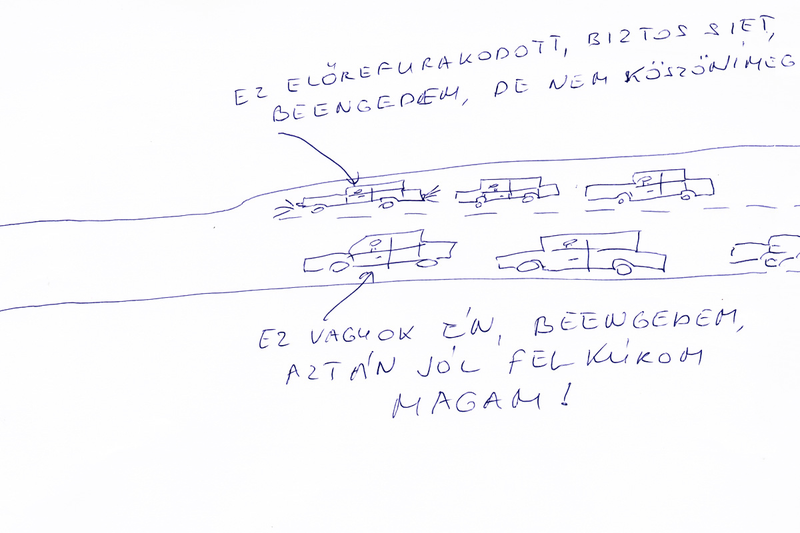 EZ ELŐREFURAKODOTT, BIZTOS SIET,
BEENGEDEM, DE NEM KÖSZÖNI MEG
EZ VAGYOK ÉN, BEENGEDEM,
AZTÁN JÓL FELKÚROM
MAGAM!